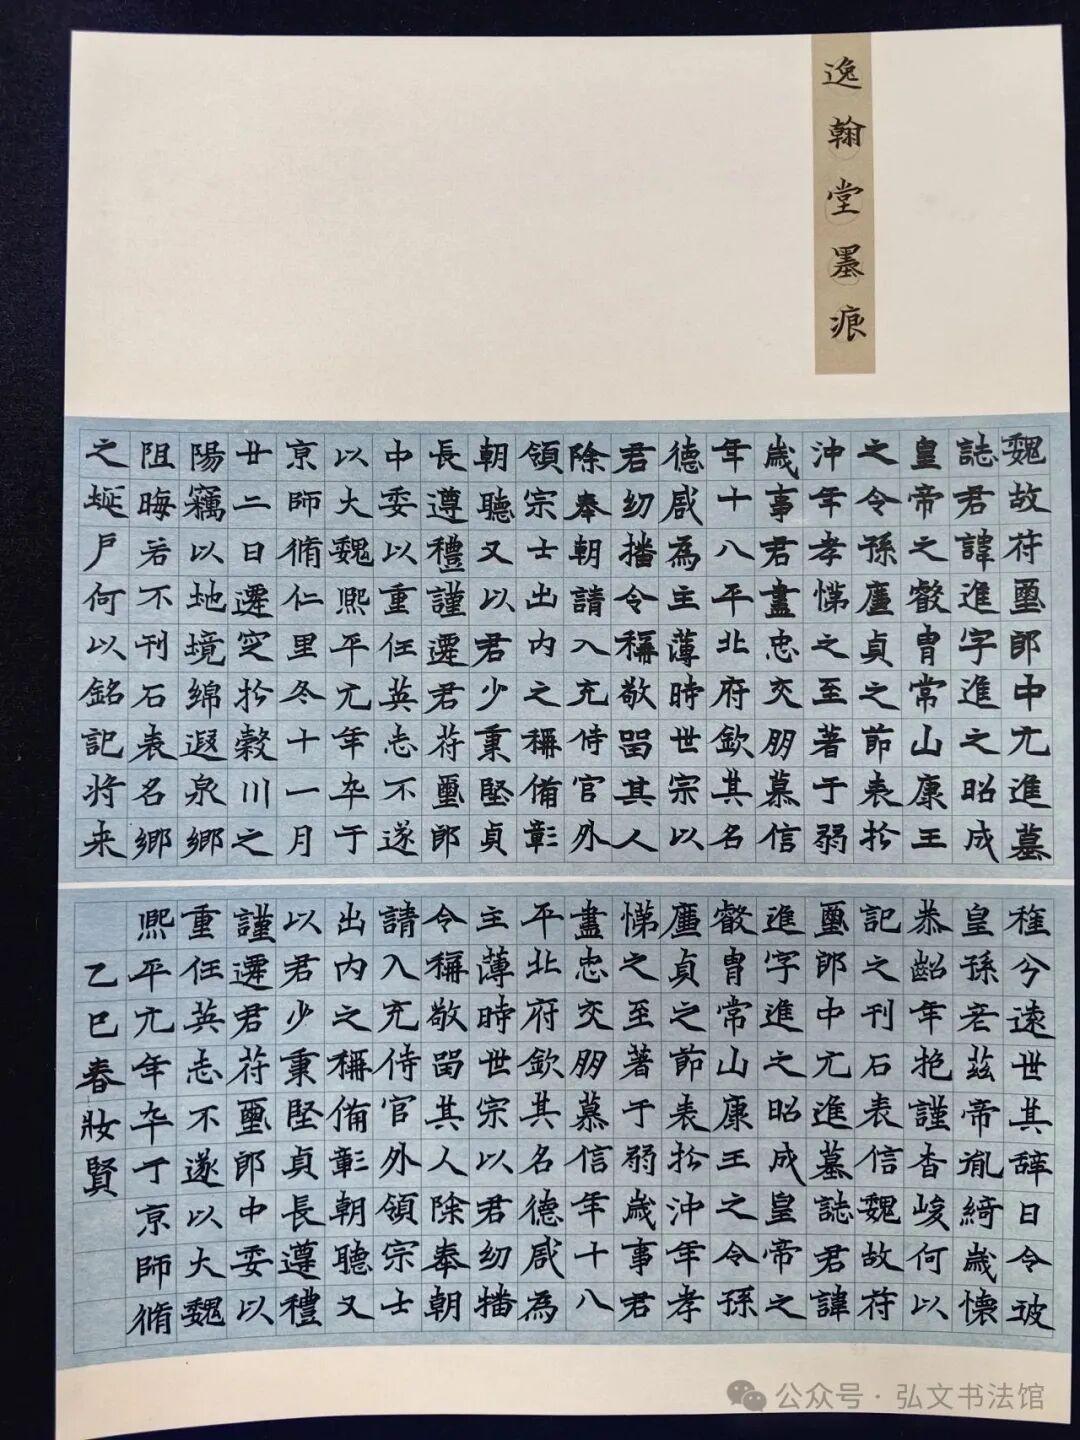 逸翰堂墨痕
魏故符璽郎中元進墓
誌君諱進字進之昭成
皇帝之叡胄常山康王
之令孫廉貞之節表於
沖年孝悌之至著于弱
歲事君盡忠交朋慕信
年十八平北府欽其名
德咸為主薄時世宗以
君幼播令稱敬留其人
除奉朝請入充侍官外
領宗士出内之稱備彰
朝聽又以君少秉堅貞
長遵禮謹遷君符璽郎
中委以重任英志不遂
以大魏熙平元年卒于
京師脩仁里冬十一月
廿二日遷窆於穀川之
陽竊以地境綿遐泉鄉
阻晦若不刊石表名鄉
之埏尸何以銘記将来
稚兮遠世其辞曰令玻
皇孫芒茲帝胤綺歲懷
恭齠年抱謹杳峻何以
記之刊石表信魏故符
璽郎中元進墓誌君諱
進字進之昭成皇帝之
叡胄常山康王之令孫
廉貞之節表於沖年孝
悌之至著于弱歲事君
盡忠交朋慕信年十八
平北府欽其名德咸為
主薄時世宗以君幼播
令稱敬留其人除奉朝
請入充侍官外領宗士
出内之稱備彰朝聽又
以君少秉堅貞長遵禮
謹遷君符璽郎中委以
重任英志不遂以大魏
熙平元年卒丁京師脩
乙巳春妝賢
公众号·弘文书法馆